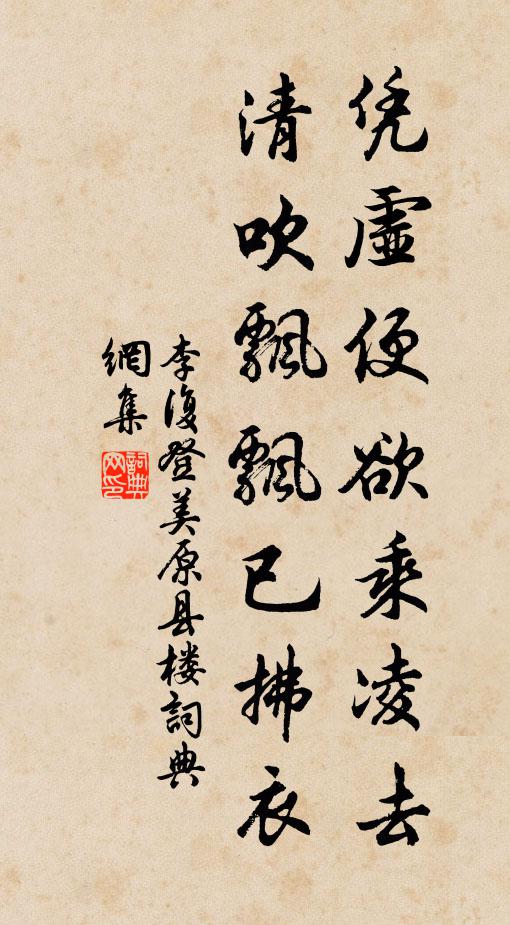 凭虚便欲乘凌去
清吹飘飘已拂衣
李復登美原县楼詞典
網集
詞典網印